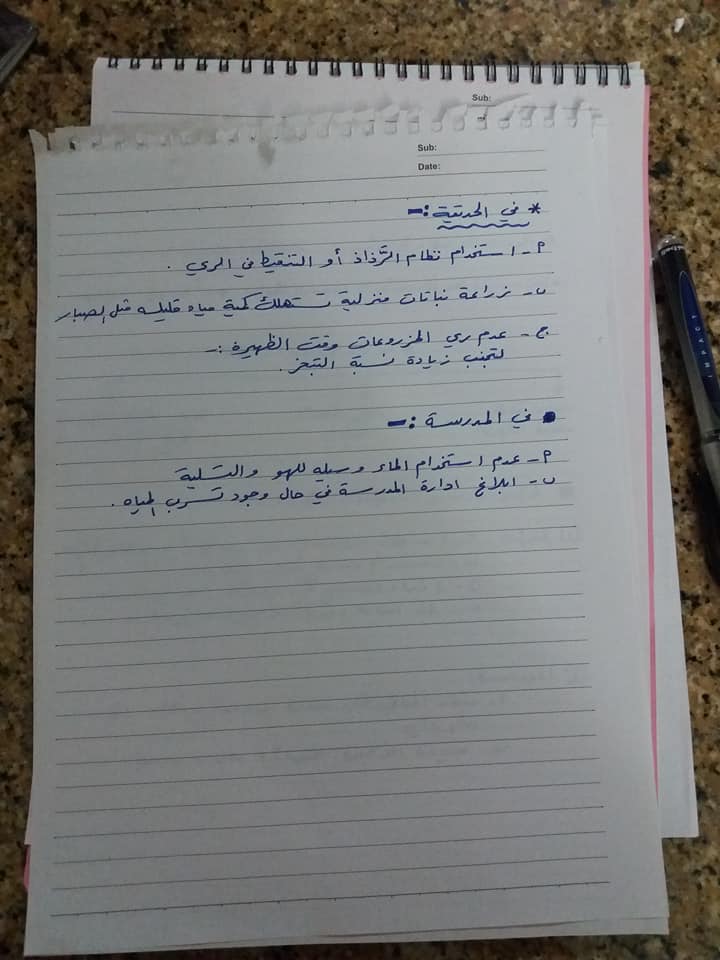 Sub:
Sub:
Date:
* في الحديقة :-
أ- استخدام نظام الرَّذاذ أو التنقيط في الري .
ب- زراعة نباتات منزلية تستهلك كمية مياه قليله مثل الصبار
ج- عدم ري المزروعات وقت الظهيرة :-
لتجنب زيادة نسبة التبخر .
• في المدرسة :-
أ- عدم استخدام الماء وسيله للهو والتسلية
ب- ابلاغ ادارة المدرسة في حال وجود تسرب المياه .
IMPACT